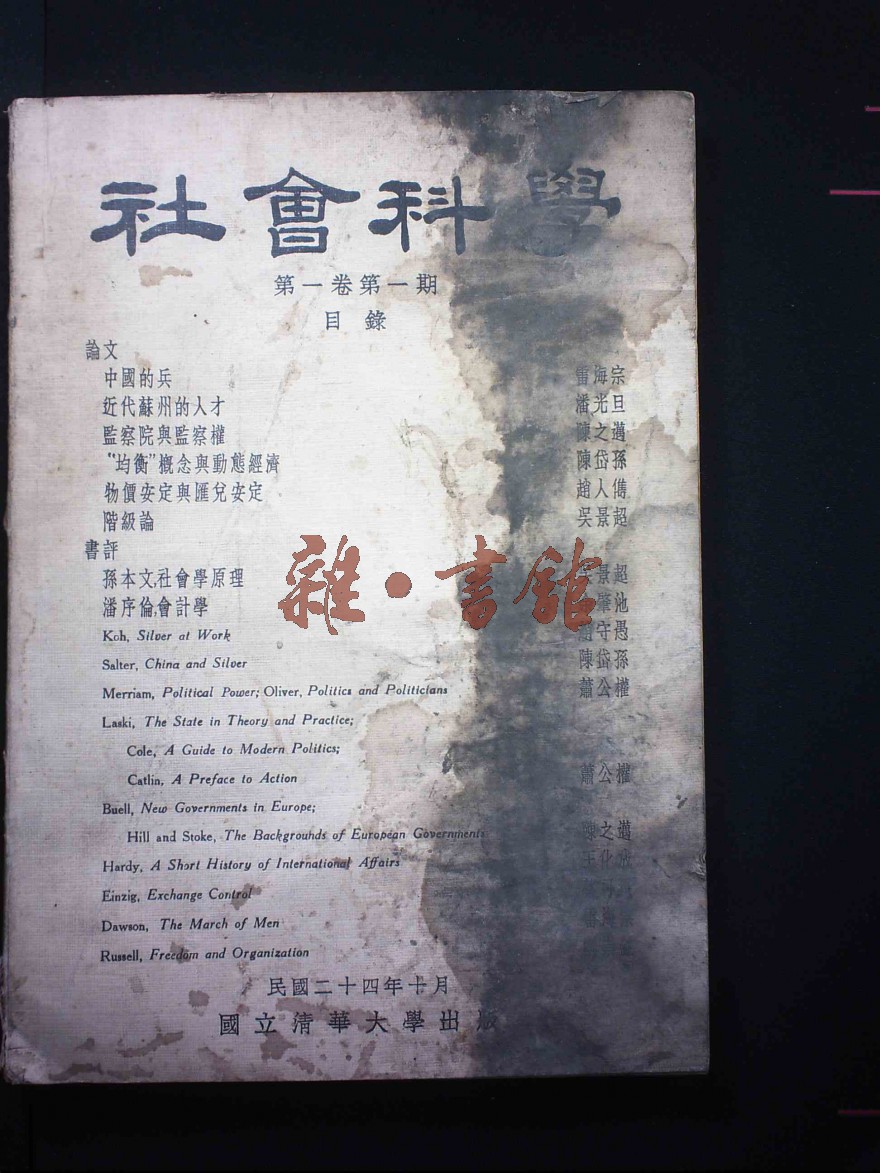 社會科學
第一卷第一期
目錄
論文
中國的兵 雷海宗
近代蘇州的人才 潘光旦
監察院與監察權 陳之邁
“均衡”概念與動態經濟 陳岱孫
物價安定與匯兌安定 趙人儁
階級論 吳景超
書評
孫本文,社會學原理 吳景超
潘序倫,會計學 肇池
Koh, Silver at Work 守愚
Salter, China and Silver 陳岱孫
Merriam, Political Power; Oliver, Politics and Politicians 蕭公權
Laski, The State in Theory and Practice;
Cole, A Guide to Modern Politics;
Catlin, A Preface to Action 蕭公權
Buell, New Governments in Europe;
Hill and Stoke, The Backgrounds of European Governments 陳之邁
Hardy, A Short History of International Affairs 王化成
Einzig, Exchange Control
Dawson, The March of Men
Russell, Freedom and Organization
民國二十四年十月
國立清華大學出版
雜·書館